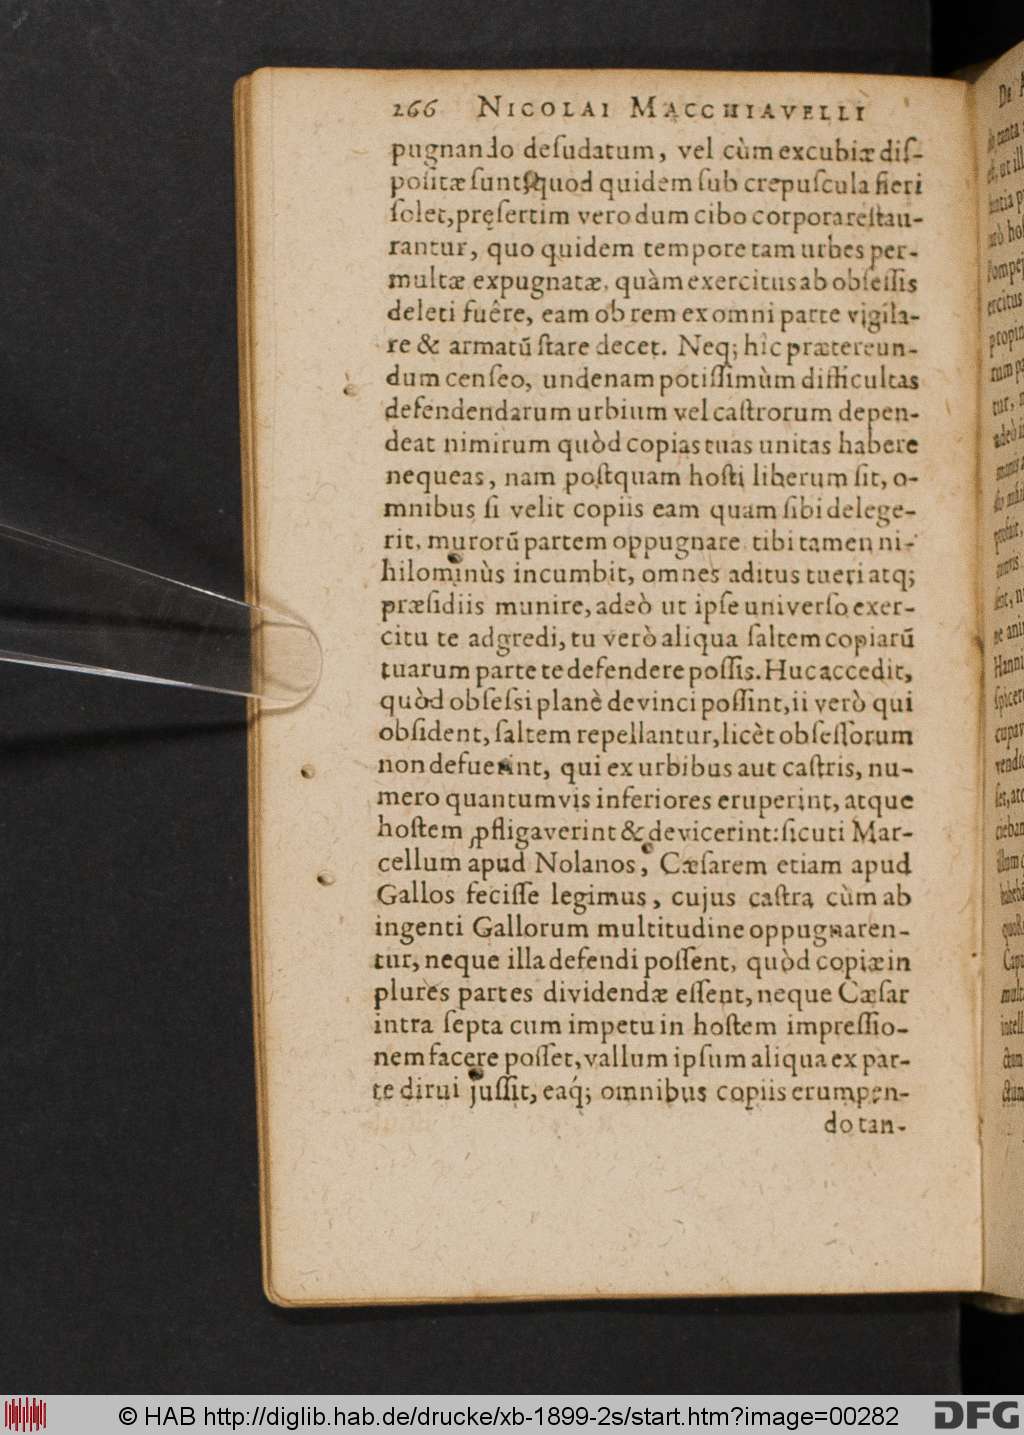 266 NICOLAI MACCHIAVELLI
pugnando deſudatum, vel cùm excubiæ diſ-
poſitæ ſunt, quod quidem ſub crepuſcula fieri
ſolet, pręſertim vero dum cibo corpora reſtau-
rantur, quo quidem tempore tam urbes per-
multæ expugnatæ, quàm exercitus ab obſeſſis
deleti fuêre, eam ob rem ex omni parte vigila-
re & armatũ ſtare decet. Neq; hic prætereun-
dum cenſeo, undenam potiſſimùm difficultas
defendendarum urbium vel caſtrorum depen-
deat nimirum quòd copias tuas unitas habere
nequeas, nam poſtquam hoſti liberum ſit, o-
mnibus ſi velit copiis eam quam ſibi delege-
rit, murorũ partem oppugnare tibi tamen ni-
hilominùs incumbit, omnes aditus tueri atq;
præſidiis munire, adeò ut ipſe univerſo exer-
citu te adgredi, tu verò aliqua ſaltem copiarũ
tuarum parte te defendere poſſis. Huc accedit,
quòd obſeſsi planè devinci poſſint, ii verò qui
obſident, ſaltem repellantur, licèt obſeſſorum
non defuerint, qui ex urbibus aut caſtris, nu-
mero quantumvis inferiores eruperint, atque
hoſtem ꝓfligaverint & devicerint: ſicuti Mar-
cellum apud Nolanos, Cæſarem etiam apud
Gallos feciſſe legimus, cujus caſtra cùm ab
ingenti Gallorum multitudine oppugnaren-
tur, neque illa defendi poſſent, quòd copiæ in
plures partes dividendæ eſſent, neque Cæſar
intra ſepta cum impetu in hoſtem impreſſio-
nem facere poſſet, vallum ipſum aliqua ex par-
te dirui juſſit, eaq́; omnibus copiis erumpen-
do tan-
© HAB http://diglib.hab.de/drucke/xb-1899-2s/start.htm?image=00282
DFG